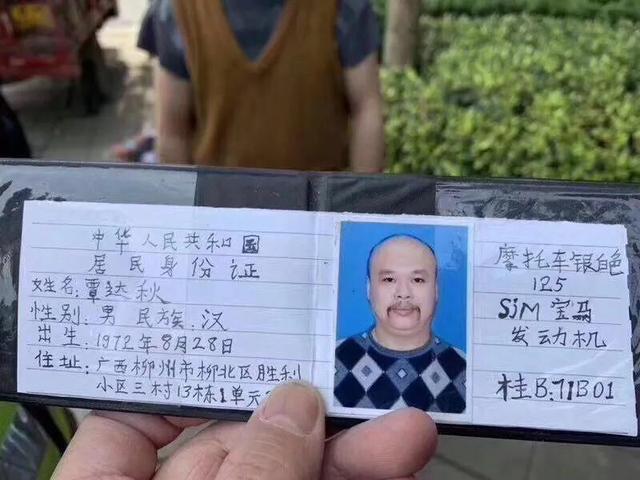 中华人民共和国
居民身份证
姓名:覃达秋
性别:男 民族:汉
出生:1972年8月28日
住址:广西柳州市柳北区胜利
小区三村13栋1单元
摩托车银色
125
SJM宝马
发动机
桂B:71B01